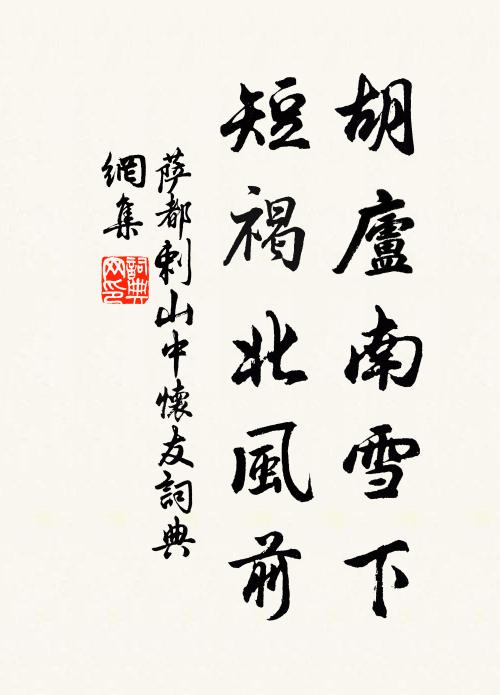 胡廬南雪下
短褐北風前
薩都剌山中懷友詞典
網集
詞典
网印